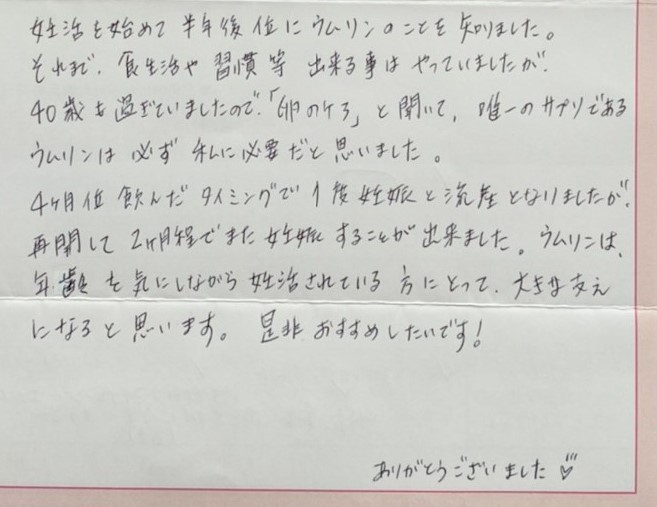 妊活を始めて半年後位にウムリンのことを知りました。
それまで、食生活や習慣等出来る事はやっていましたが、
40歳も過ぎていましたので、「卵のケア」と聞いて、唯一のサプリである
ウムリンは必ず私に必要だと思いました。
4ヶ月位飲んだタイミングで1度妊娠と流産となりましたが、
再開して2ヶ月程でまた妊娠することが出来ました。ウムリンは、
年齢を気にしながら妊活されている方にとって、大きな支え
になると思います。是非おすすめしたいです!
ありがとうございました♡